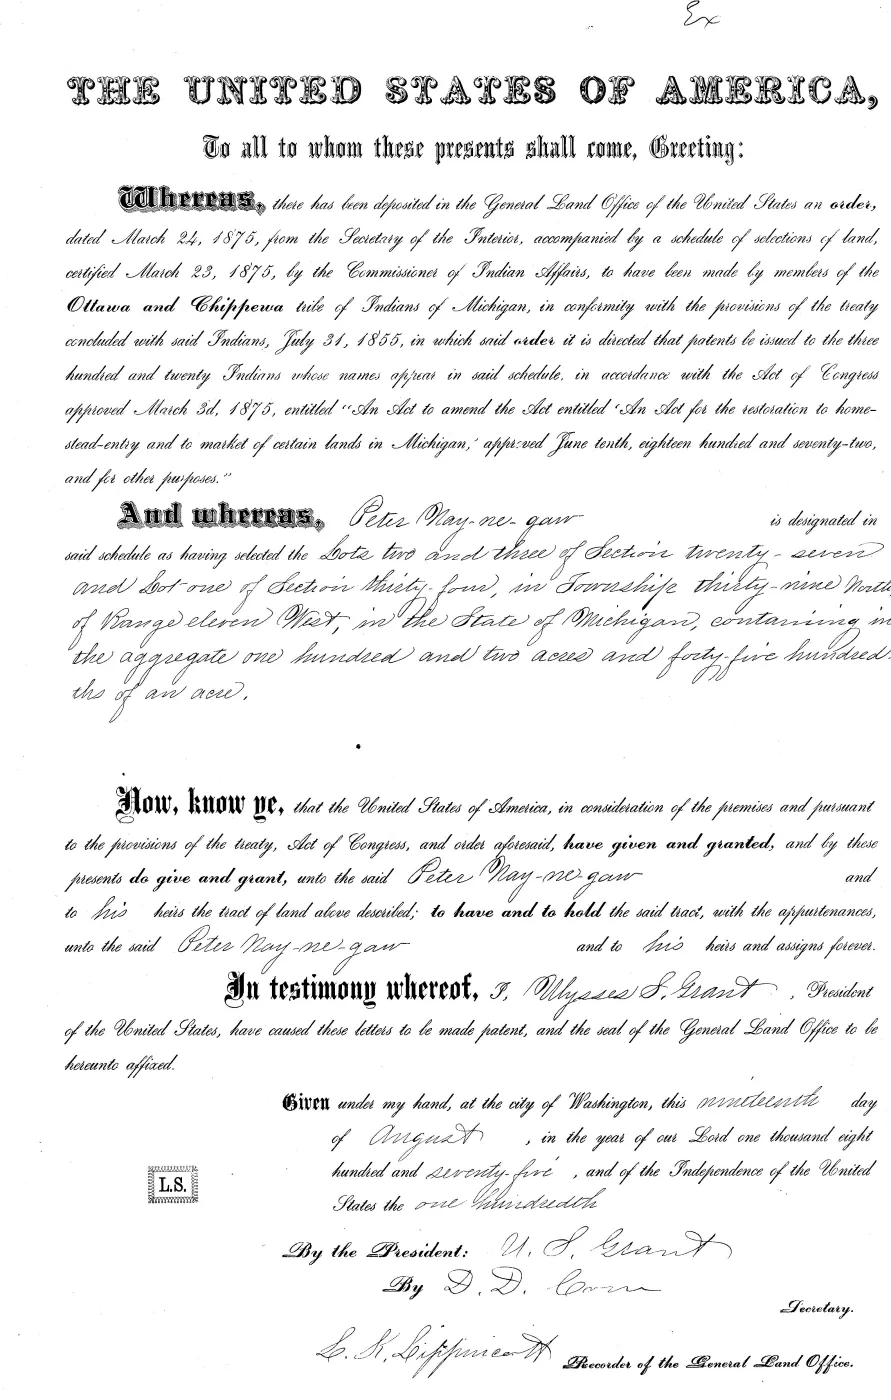 Ex
THE UNITED STATES OF AMERICA,
To all to whom these presents shall come, Greeting:
Whereas, there has been deposited in the General Land Office of the United States an order,
dated March 24, 1875, from the Secretary of the Interior, accompanied by a schedule of selections of land,
certified March 23, 1875, by the Commissioner of Indian Affairs, to have been made by members of the
Ottawa and Chippewa tribe of Indians of Michigan, in conformity with the provisions of the treaty
concluded with said Indians, July 31, 1855, in which said order it is directed that patents be issued to the three
hundred and twenty Indians whose names appear in said schedule, in accordance with the Act of Congress
approved March 3d, 1875, entitled "An Act to amend the Act entitled 'An Act for the restoration to home-
stead-entry and to market of certain lands in Michigan,' approved June tenth, eighteen hundred and seventy-two,
and for other purposes."
And whereas, Peter Nay-ne-gaw is designated in
said schedule as having selected the Lots two and three of Section twenty-seven
and Lot one of Section thirty-four, in Township thirty-nine North
of Range eleven West, in the State of Michigan, containing in
the aggregate one hundred and two acres and forty-five hundred-
ths of an acre.
Now, know ye, that the United States of America, in consideration of the premises and pursuant
to the provisions of the treaty, Act of Congress, and order aforesaid, have given and granted, and by these
presents do give and grant, unto the said Peter Nay-ne-gaw and
to his heirs the tract of land above described; to have and to hold the said tract, with the appurtenances,
unto the said Peter Nay-ne-gaw and to his heirs and assigns forever.
In testimony whereof, I, Ulysses S. Grant, President
of the United States, have caused these letters to be made patent, and the seal of the General Land Office to be
hereunto affixed.
Given under my hand, at the city of Washington, this nineteenth day
of August, in the year of our Lord one thousand eight
hundred and seventy-five, and of the Independence of the United
States the one hundredth
L.S.
By the President: U. S. Grant
By D. D. Cone
Secretary.
L. K. Lippincott Recorder of the General Land Office.